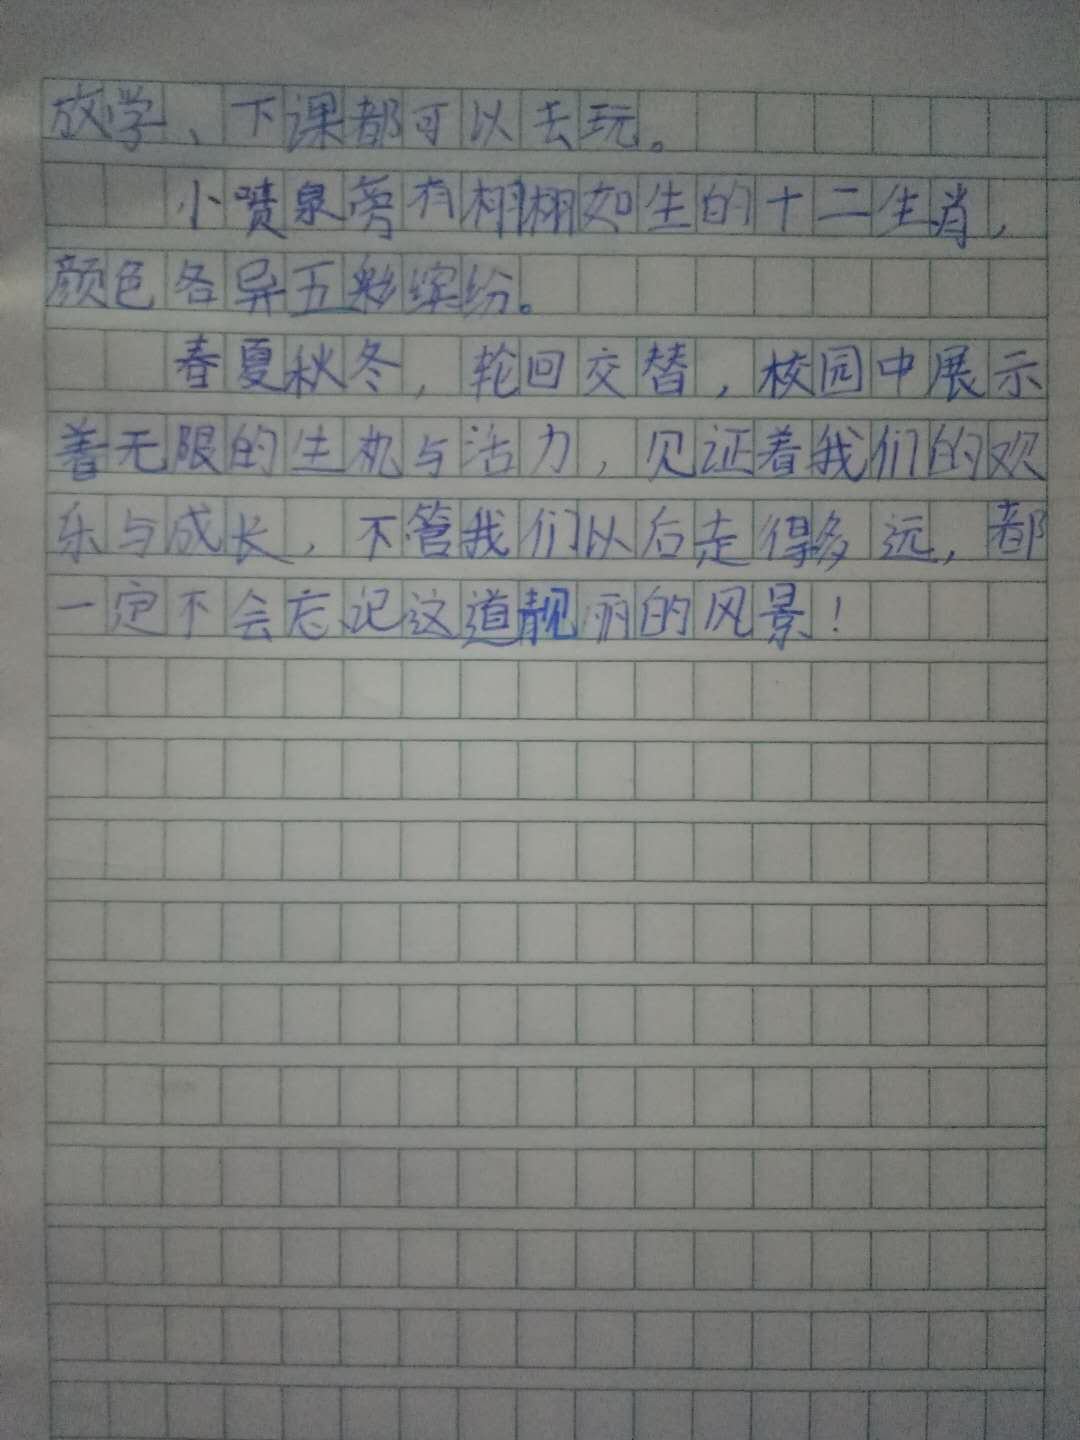 放学、下课都可以去玩。
小喷泉旁有栩栩如生的十二生肖，
颜色各异五彩缤纷。
春夏秋冬，轮回交替，校园中展示
着无限的生机与活力，见证着我们的欢
乐与成长，不管我们以后走得多远，都
一定不会忘记这道靓丽的风景！